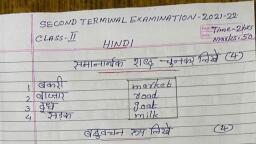 SECOND TERMINAL EXAMINATION-2021-22
CLASS-II
Time-2hrs
HINDI
Marks.50
समानार्थक शब्द चुनकर लिखें (4)
1 बकरी market
2 बाजार road
3 दूध goat
4 सड़क milk
बहुवचन रूप लिखें (4)